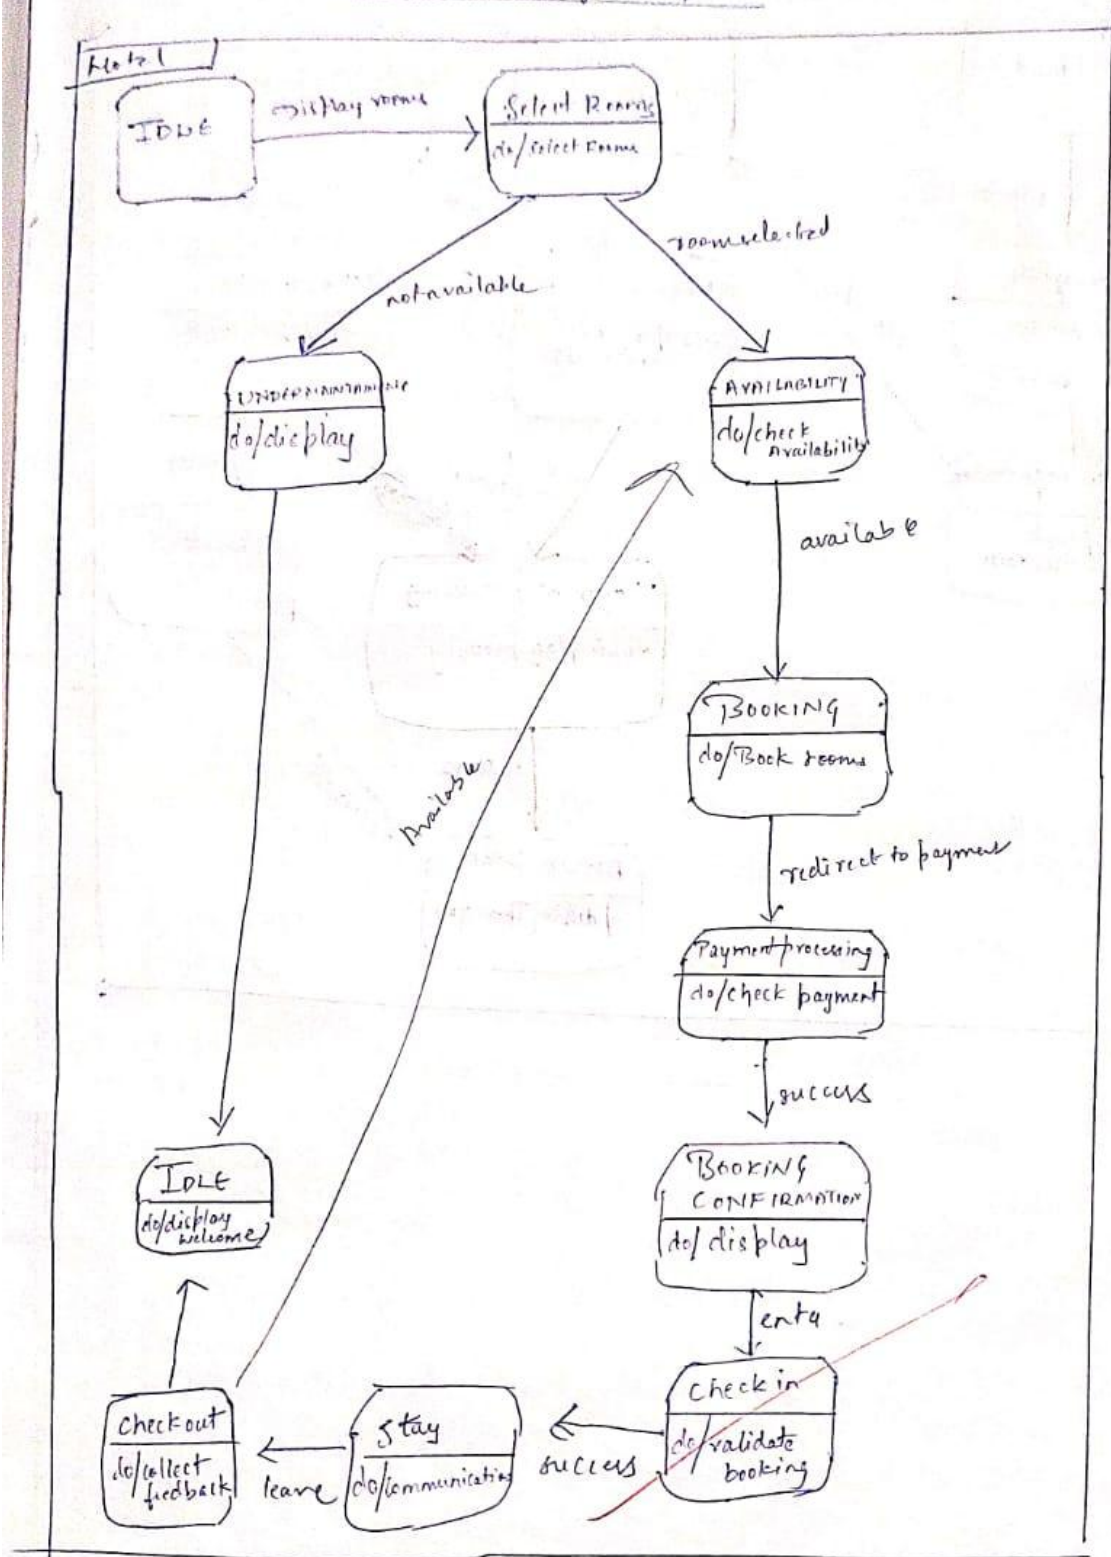 Hotel
IDLE
Display rooms
Select Rooms
do/select rooms
not available
room selected
UNDERMAINTAINING
do/display
AVAILABILITY
do/check
Availability
available
BOOKING
do/Book rooms
Available
redirect to payment
Payment processing
do/check payment
success
IDLE
do/display
welcome
BOOKING
CONFIRMATION
do/display
Check in
do/validate
booking
success
Stay
do/communication
leave
Checkout
do/collect
feedback